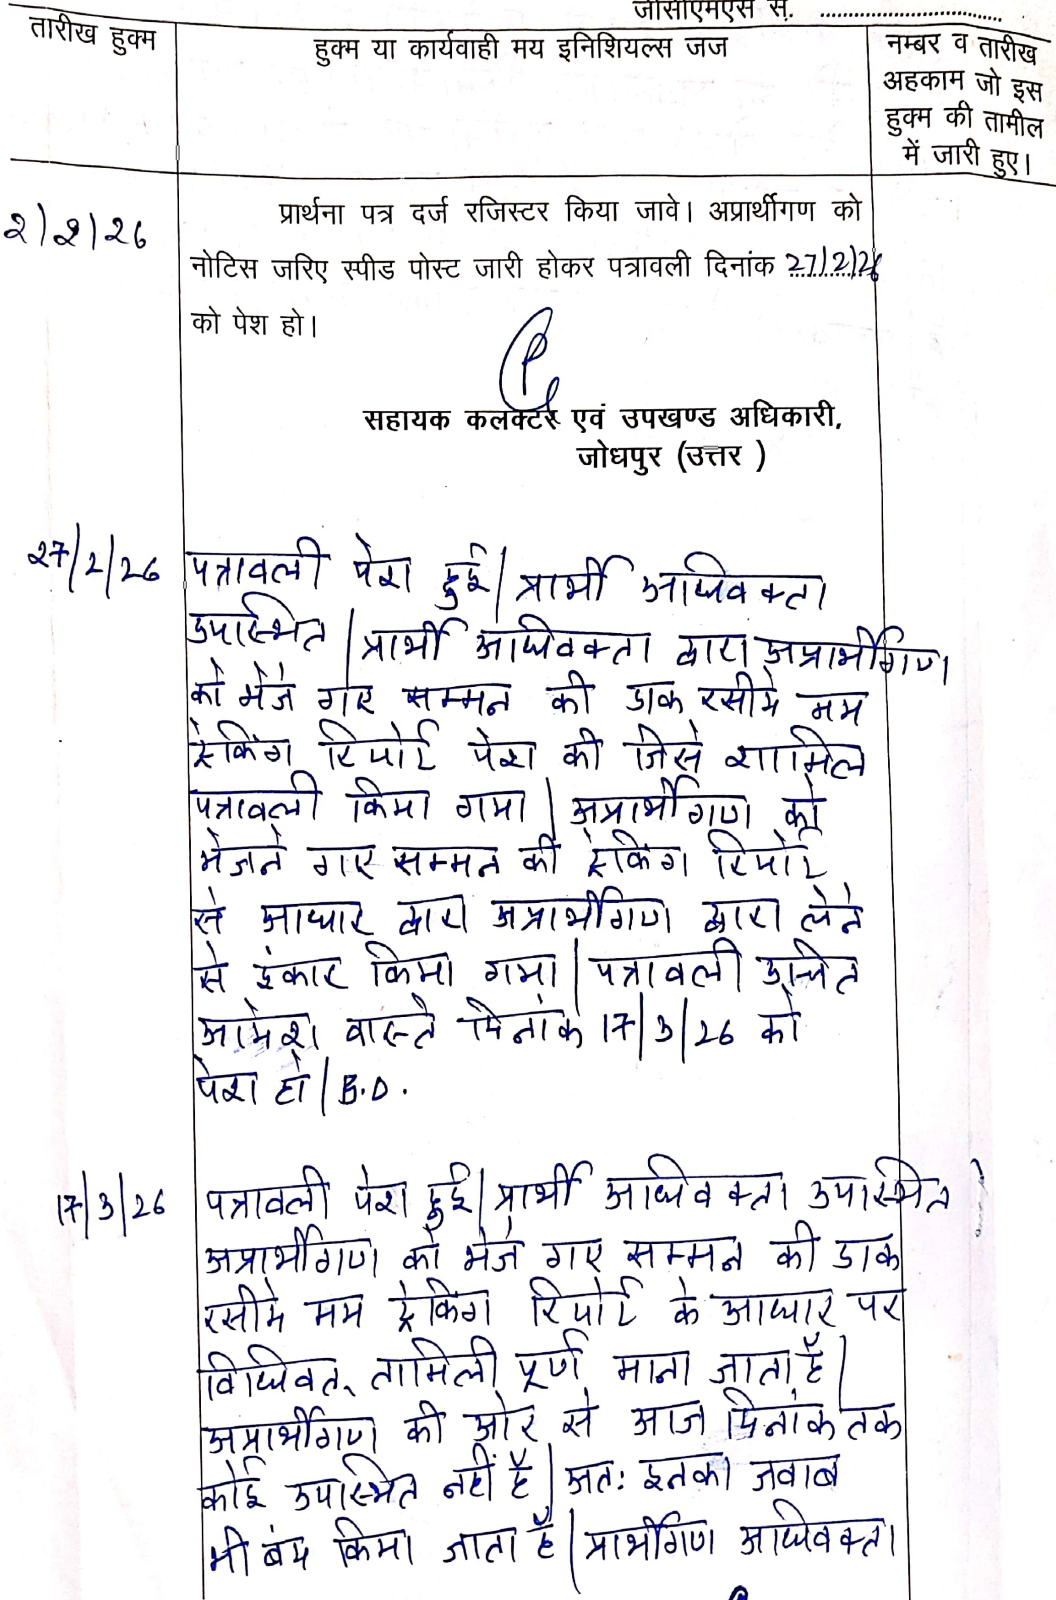 जीसीएमएस सं. ..............................
तारीख हुक्म
हुक्म या कार्यवाही मय इनिशियल्स जज
नम्बर व तारीख
अहकाम जो इस
हुक्म की तामील
में जारी हुए।
2/2/26
प्रार्थना पत्र दर्ज रजिस्टर किया जावे। अप्रार्थीगण को
नोटिस जरिए स्पीड पोस्ट जारी होकर पत्रावली दिनांक 27/2/26
को पेश हो।
सहायक कलक्टर एवं उपखण्ड अधिकारी,
जोधपुर (उत्तर )
27/2/26
पत्रावली पेश हुई | प्रार्थी अधिवक्ता
उपस्थित | प्रार्थी अधिवक्ता द्वारा अप्रार्थीगण
को भेजे गए सम्मन की डाक रसीदे मय
ट्रेकिंग रिपोर्ट पेश की जिसे शामिल
पत्रावली किया गया | अप्रार्थीगण को
भेजने गए सम्मन की ट्रेकिंग रिपोर्ट
से आधार द्वारा अप्रार्थीगण द्वारा लेने
से इंकार किया गया | पत्रावली उचित
आदेश वास्ते दिनांक 17/3/26 को
पेश हो | B.D.
17/3/26
पत्रावली पेश हुई | प्रार्थी अधिवक्ता उपस्थित
अप्रार्थीगण को भेजे गए सम्मन की डाक
रसीदे मय ट्रेकिंग रिपोर्ट के आधार पर
विधिवत् तामिली पूर्ण माना जाता है |
अप्रार्थीगण की ओर से आज दिनांक तक
कोई उपस्थित नहीं है | अतः इनका जवाब
भी बंद किया जाता है | प्रार्थीगण अधिवक्ता